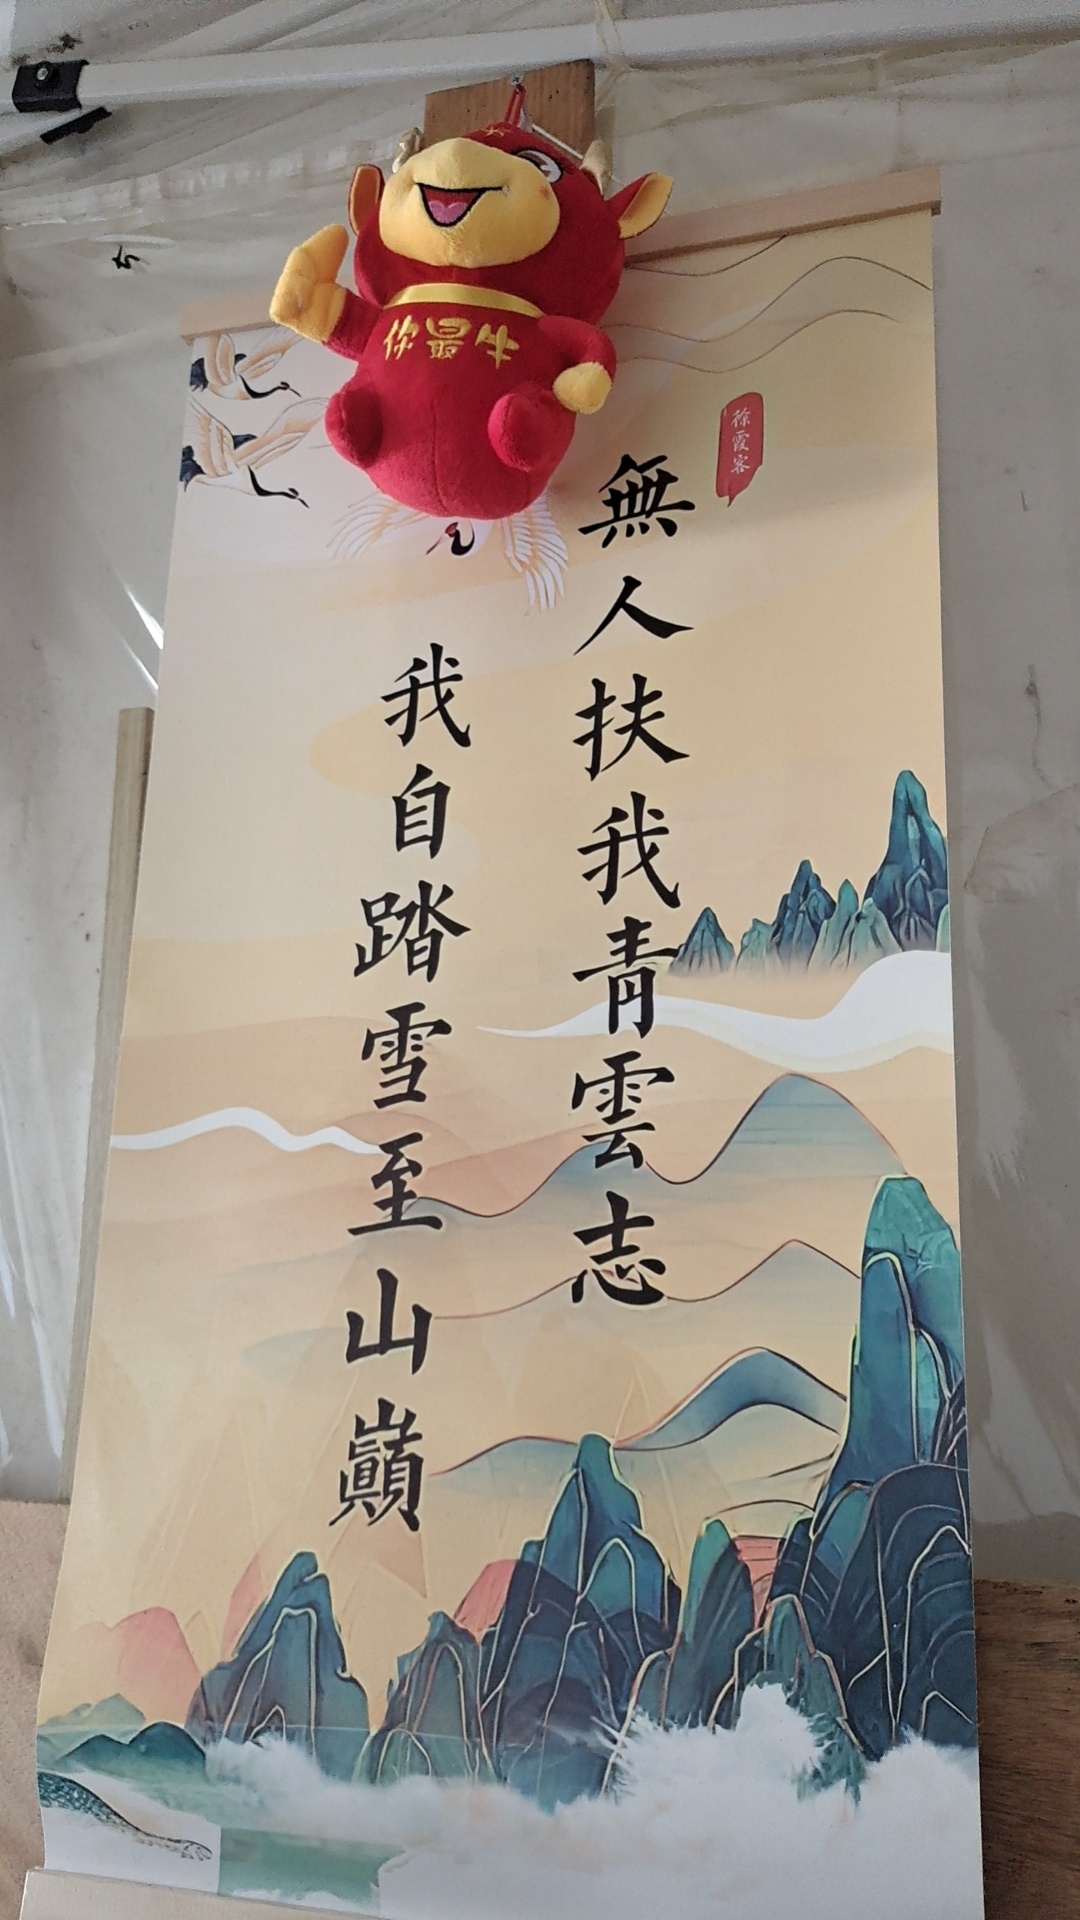 你最牛
徐霞客
無人扶我青雲志
我自踏雪至山巔